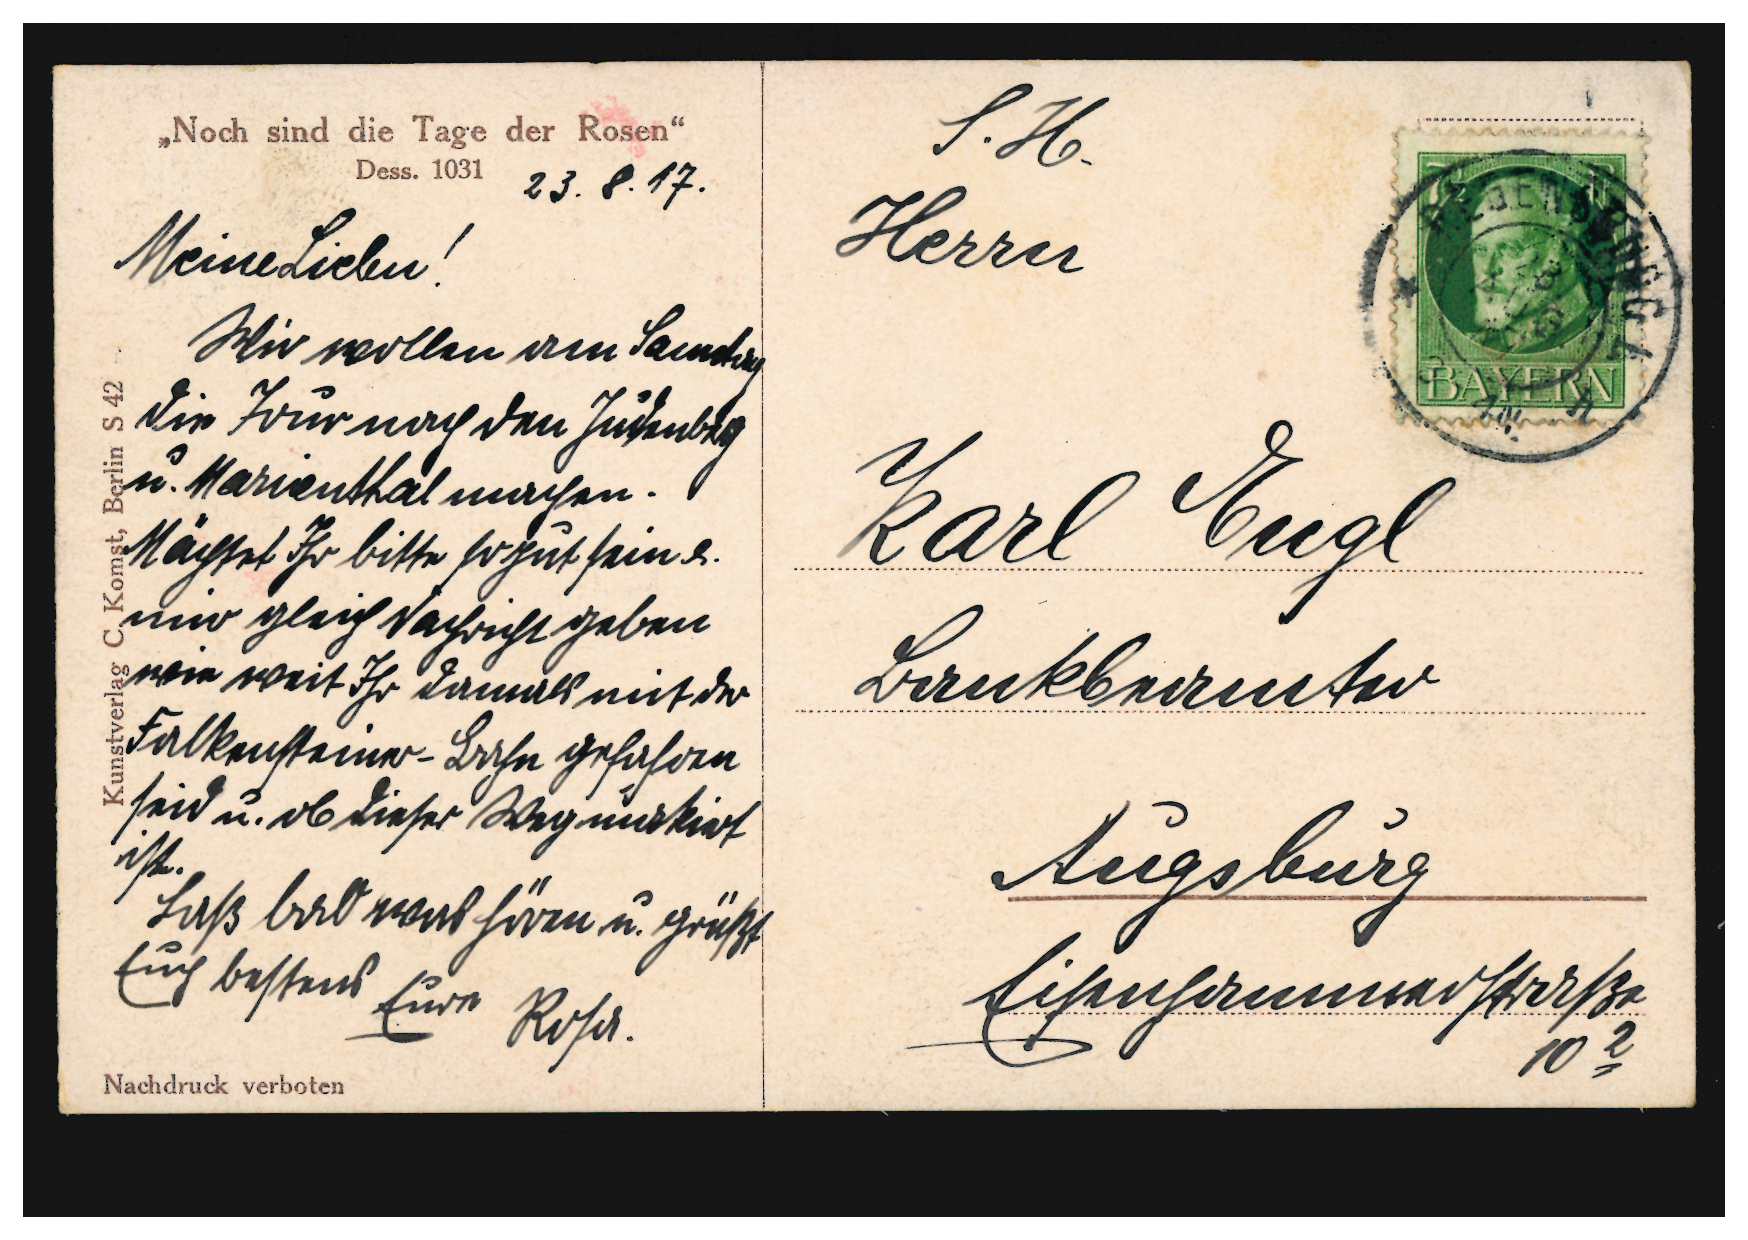 „Noch sind die Tage der Rosen“
Dess. 1031
23. 8. 17.
Meine Lieben!
Wir wollen am Samstag
die Tour nach den Judenberg
u. Marienthal machen.
Möchtet Ihr bitte so gut sein u.
mir gleich Nachricht geben
wie weit Ihr damals mit der
Falkensteiner-Bahn gefahren
seid u. ob dieser Weg markiert
ist.
Laß bald was hören u. grüßt
Euch bestens Eure Rosa.
Nachdruck verboten
Kunstverlag C. Komst, Berlin S 42
S. H.
Herrn
Karl Engl
Bankbeamter
Augsburg
Eisenhammerstraße
10 2
REGENSBURG 4
BAYERN